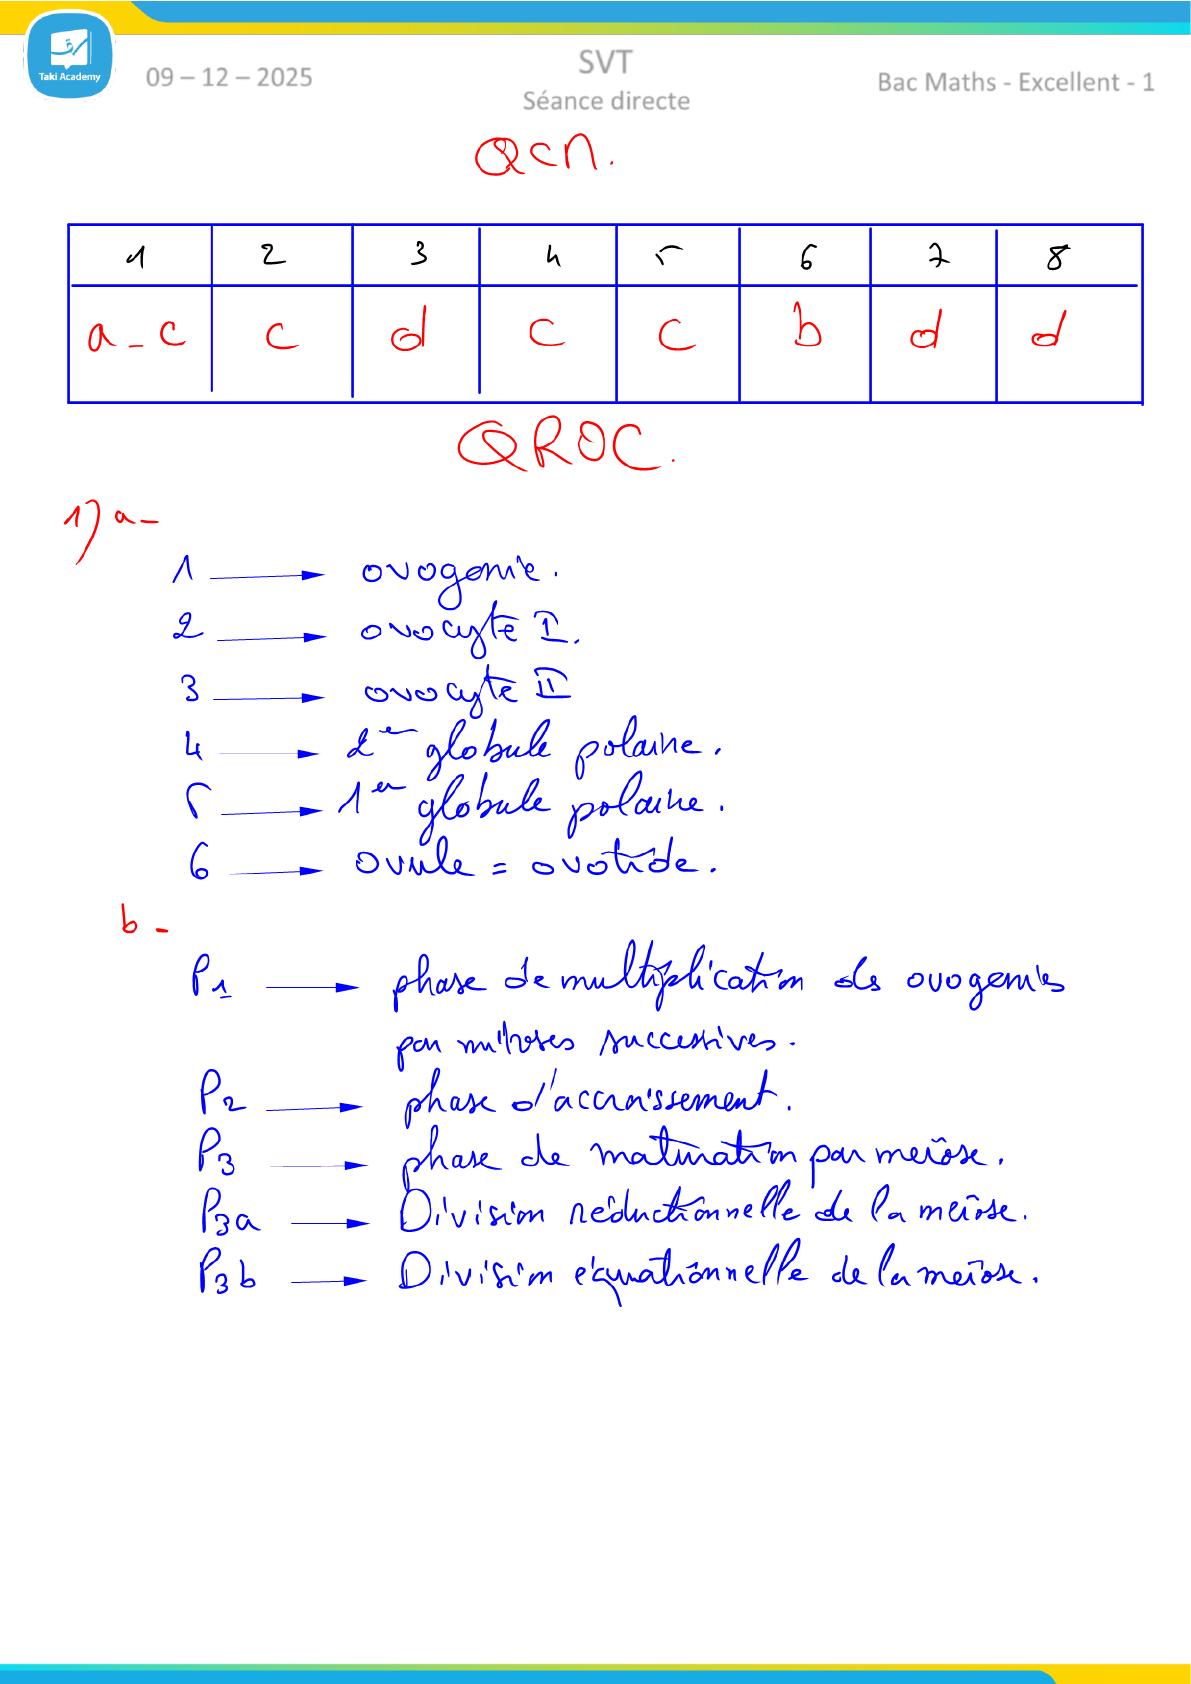 Taki Academy
09 – 12 – 2025
SVT
Séance directe
Bac Maths - Excellent - 1
QCM.
1 2 3 4 5 6 7 8
a - c c d c c b d d
QROC.
1) a -
1 → ovogonie.
2 → ovocyte I.
3 → ovocyte II
4 → 2er globule polaire.
5 → 1er globule polaire.
6 → ovule = ovotide.
b -
P1 → phase de multiplication des ovogonies
par mitoses successives.
P2 → phase d'accroissement.
P3 → phase de maturation par meïose.
P3a → Division réductionnelle de la meïose.
P3b → Division équationnelle de la meïose.